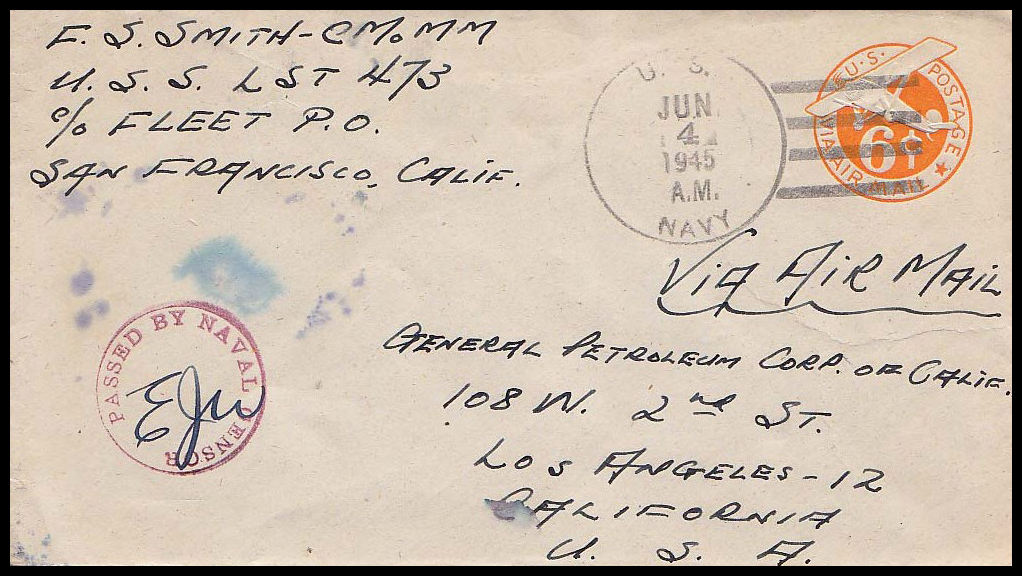 F. S. SMITH - CMoMM
U. S. S. LST 473
c/o FLEET P.O.
SAN FRANCISCO, CALIF.
U. S.
JUN.
4
1945
A.M.
NAVY
U.S. POSTAGE
VIA AIR MAIL
6¢
VIA AIR MAIL
PASSED BY NAVAL CENSOR
GENERAL PETROLEUM CORP. OF CALIF.
108 W. 2nd ST.
LOS ANGELES - 12
CALIFORNIA
U. S. A.